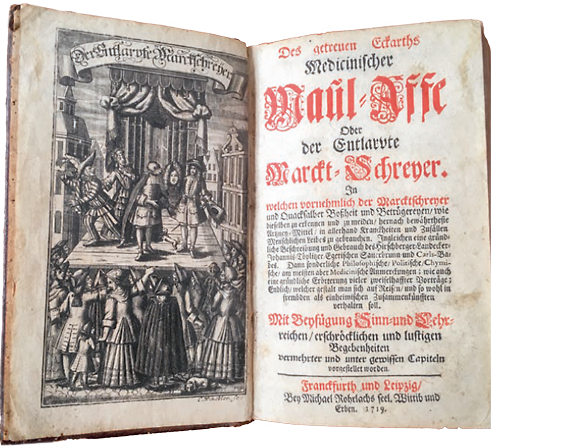 Der Entlarvte Marcktschreyer
Des getreuen Eckarths
Medicinischer
Maul-Affe
Oder
der Entlarvte
Marckt-Schreyer.
In
welchen vornehmlich der Marcktschreyer
und Quacksalber Boßheit und Betrügereyen / wie
dieselben zu erkennen und zu meiden / hernach bewährteste
Artzney-Mittel / in allerhand Kranckheiten und Zufällen
Menschlichen Leibes zu gebrauchen. Ingleichen eine gründ-
liche Beschreibung und Gebrauch des Hirschberger-Landecker-
Johannis-Töplitzer Egerischen Sauerbrunn und Carls-Ba-
des. Dann sonderliche Philosophische / Politische / Chymi-
sche / am meisten aber Medicinische Anmerckungen; wie auch
eine gründliche Erörterung vieler zweiffelhaffter Vorträge;
Endlich / welcher gestalt man sich auf Reisen / und so wohl in
frembden als einheimischen Zusammenkünfften
verhalten soll.
Mit Beyfügung Sinn-und Lehr-
reichen / erschröcklichen und lustigen
Begebenheiten
vermehrter und unter gewissen Capiteln
vorgestellet worden.
Franckfurth und Leipzig /
Bey Michael Rohrlachs seel. Wittib und
Erben. 1719.